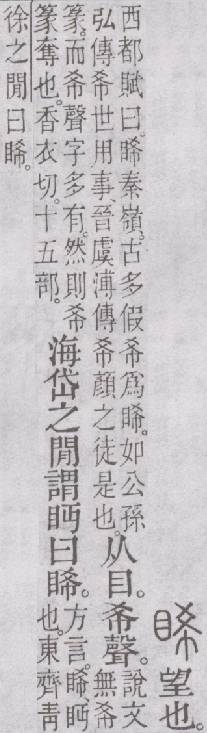 睎望也。
西都賦曰。睎秦嶺。古多假希爲睎。如公孫
弘傳希世用事、晉虞溥傳希顏之徒是也。
从目。希聲。
說文
無希
篆。而希聲字多有。然則希
篆奪也。香衣切。十五部。
海岱之閒謂眄曰睎。
方言。睎、眄
也。東齊靑
徐之閒曰睎。